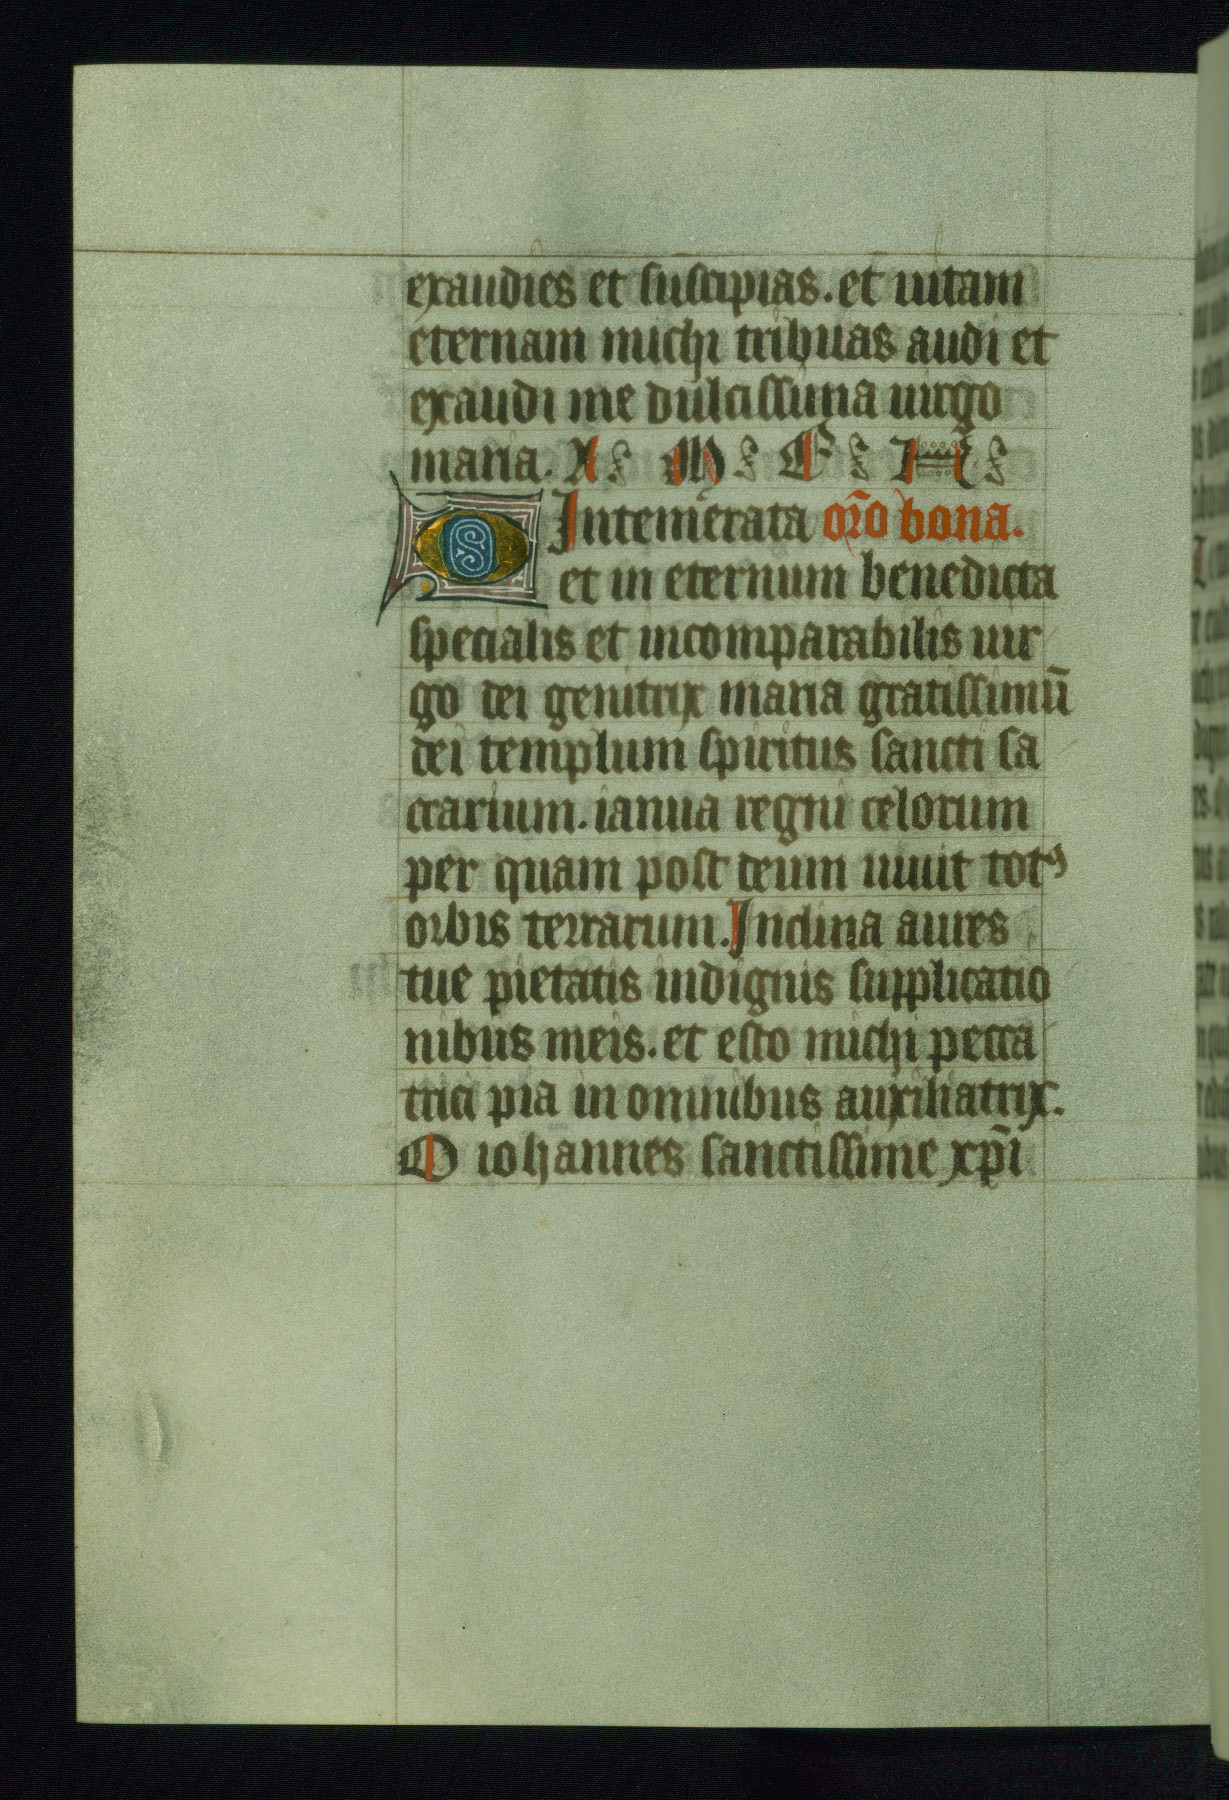 exaudies et suscipias. et uitam
eternam michi tribuas audi et
exaudi me dulcissima uirgo
maria. A M E N
O Intemerata or̃o bona.
et in eternum benedicta
specialis et incomparabilis uir
go dei genitrix maria gratissimũ
dei templum spiritus sancti sa
crarium. ianua regni celorum
per quam post deum uiuit totꝰ
orbis terrarum. Inclina aures
tue pietatis indignis supplicatio
nibus meis. et esto michi pecca
trici pia in omnibus auxiliatrix.
O iohannes sanctissime xp̃i